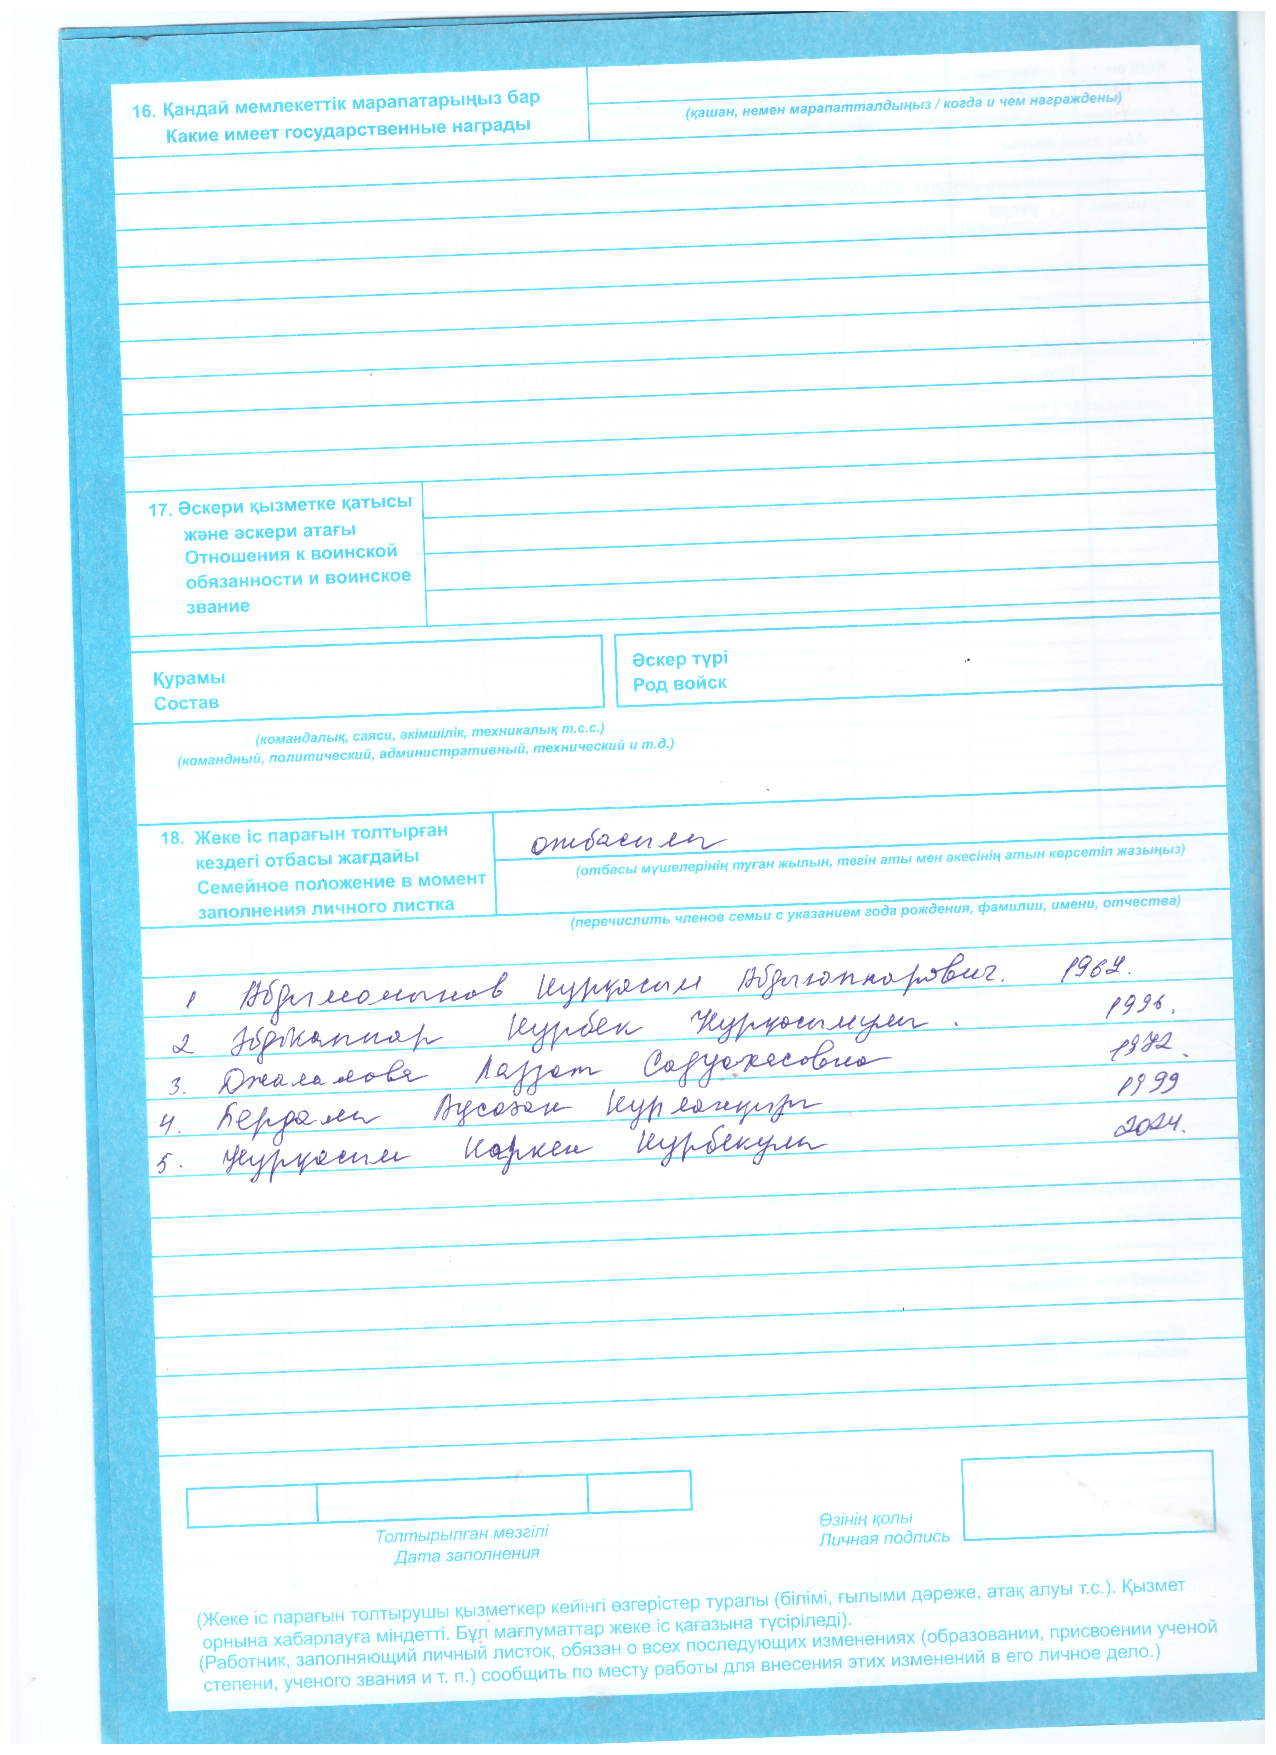 16. Қандай мемлекеттік марапатарыңыз бар
Какие имеет государственные награды
(қашан, немен марапатталдыңыз / когда и чем награждены)
17. Әскери қызметке қатысы
және әскери атағы
Отношения к воинской
обязанности и воинское
звание
Құрамы
Состав
Әскер түрі
Род войск
(командалық, саяси, әкімшілік, техникалық т.с.с.)
(командный, политический, административный, технический и т.д.)
18. Жеке іс парағын толтырған
кездегі отбасы жағдайы
Семейное положение в момент
заполнения личного листка
отбасылы
(отбасы мүшелерінің туған жылын, тегін аты мен әкесінің атын көрсетіп жазыңыз)
(перечислить членов семьи с указанием года рождения, фамилии, имени, отчества)
1 Нурқасым 1967.
2 Әбдіқаппар Нурбек Нурқасымулы. 1996.
3. Джалалова Лаззат Садуакасовна 1972.
4. Бердалы Аусазан Нурланқызы 1999
5. Нурқасым Наркен Нурбекулы 2024.
Толтырылған мезгілі
Дата заполнения
Өзінің қолы
Личная подпись
(Жеке іс парағын толтырушы қызметкер кейінгі өзгерістер туралы (білімі, ғылыми дәреже, атақ алуы т.с.). Қызмет
орнына хабарлауға міндетті. Бұл мағлуматтар жеке іс қағазына түсіріледі).
(Работник, заполняющий личный листок, обязан о всех последующих изменениях (образовании, присвоении ученой
степени, ученого звания и т. п.) сообщить по месту работы для внесения этих изменений в его личное дело.)